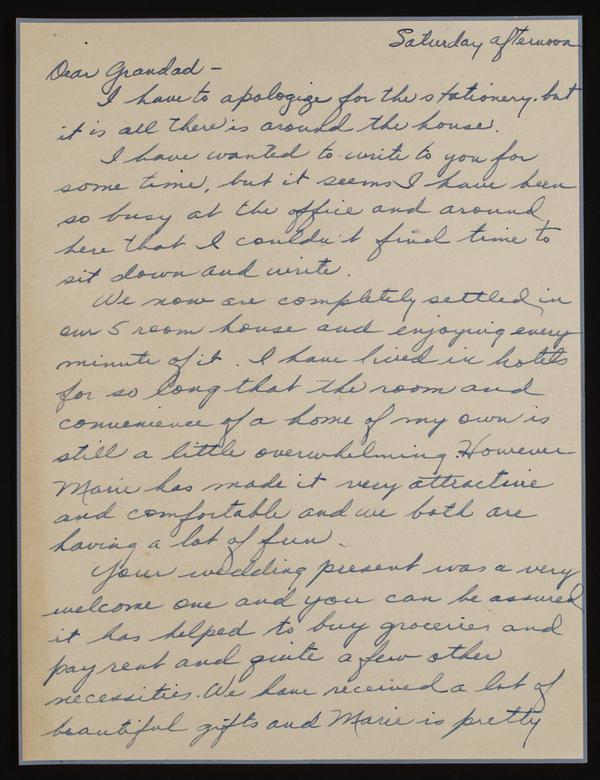 Saturday afternoon
Dear Grandad -
I have to apologize for the stationery, but
it is all there is around the house.
I have wanted to write to you for
some time, but it seems I have been
so busy at the office and around
here that I couldn't find time to
sit down and write.
We now are completely settled in
our 5 room house and enjoying every
minute of it. I have lived in hotels
for so long that the room and
convenience of a home of my own is
still a little overwhelming. However
Marie has made it very attractive
and comfortable and we both are
having a lot of fun.
Your wedding present was a very
welcome one and you can be assured
it has helped to buy groceries and
pay rent and quite a few other
necessities. We have received a lot of
beautiful gifts and Marie is pretty